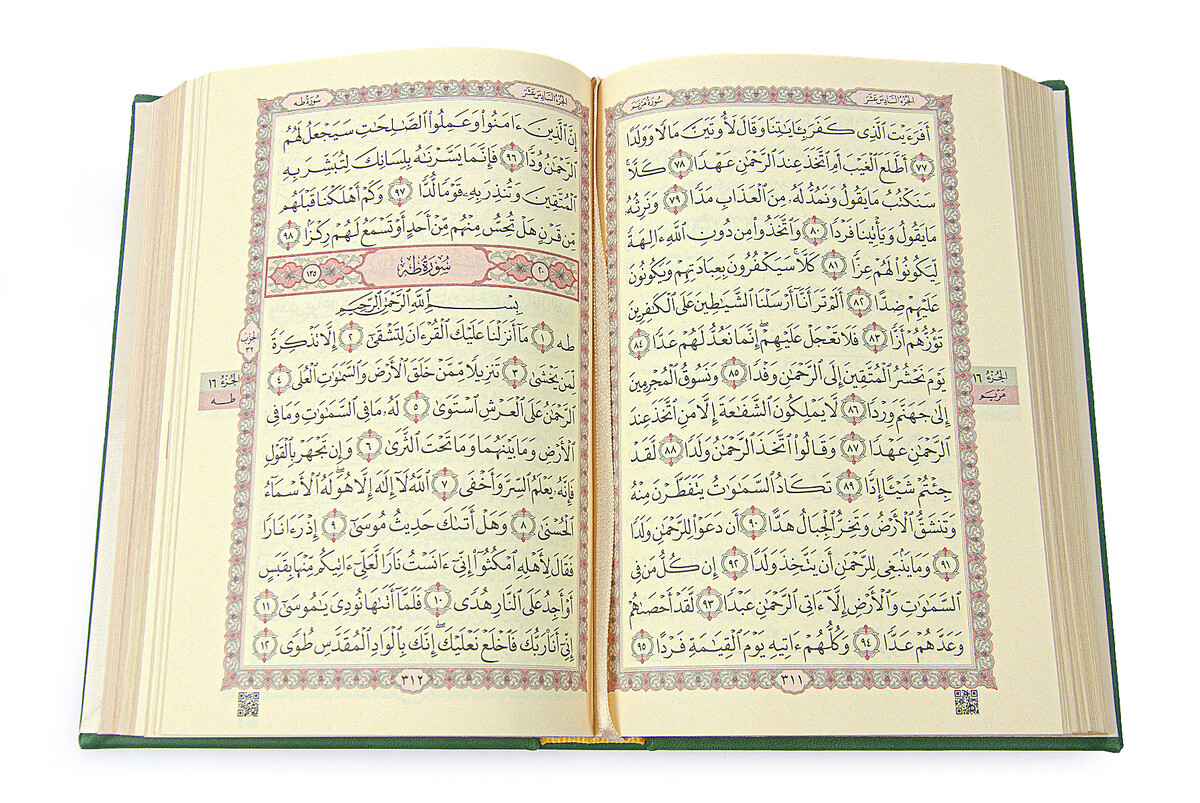 سورة مريم
الجزء السادس عشر
أَفَرَءَيْتَ ٱلَّذِى كَفَرَ بِـَٔايَـٰتِنَا وَقَالَ لَأُوتَيَنَّ مَالًا وَوَلَدًا
٧٧ أَطَّلَعَ ٱلْغَيْبَ أَمِ ٱتَّخَذَ عِندَ ٱلرَّحْمَـٰنِ عَهْدًا ٧٨ كَلَّا
سَنَكْتُبُ مَا يَقُولُ وَنَمُدُّ لَهُۥ مِنَ ٱلْعَذَابِ مَدًّا ٧٩ وَنَرِثُهُۥ
مَا يَقُولُ وَيَأْتِينَا فَرْدًا ٨٠ وَٱتَّخَذُوا۟ مِن دُونِ ٱللَّهِ ءَالِهَةً
لِّيَكُونُوا۟ لَهُمْ عِزًّا ٨١ كَلَّا سَيَكْفُرُونَ بِعِبَادَتِهِمْ وَيَكُونُونَ
عَلَيْهِمْ ضِدًّا ٨٢ أَلَمْ تَرَ أَنَّآ أَرْسَلْنَا ٱلشَّيَـٰطِينَ عَلَى ٱلْكَـٰفِرِينَ
تَؤُزُّهُمْ أَزًّا ٨٣ فَلَا تَعْجَلْ عَلَيْهِمْ ۖ إِنَّمَا نَعُدُّ لَهُمْ عَدًّا ٨٤
يَوْمَ نَحْشُرُ ٱلْمُتَّقِينَ إِلَى ٱلرَّحْمَـٰنِ وَفْدًا ٨٥ وَنَسُوقُ ٱلْمُجْرِمِينَ
إِلَىٰ جَهَنَّمَ وِرْدًا ٨٦ لَّا يَمْلِكُونَ ٱلشَّفَـٰعَةَ إِلَّا مَنِ ٱتَّخَذَ عِندَ
ٱلرَّحْمَـٰنِ عَهْدًا ٨٧ وَقَالُوا۟ ٱتَّخَذَ ٱلرَّحْمَـٰنُ وَلَدًا ٨٨ لَّقَدْ
جِئْتُمْ شَيْـًٔا إِدًّا ٨٩ تَكَادُ ٱلسَّمَـٰوَٰتُ يَتَفَطَّرْنَ مِنْهُ
وَتَنشَقُّ ٱلْأَرْضُ وَتَخِرُّ ٱلْجِبَالُ هَدًّا ٩٠ أَن دَعَوْا۟ لِلرَّحْمَـٰنِ وَلَدًا
٩١ وَمَا يَنۢبَغِى لِلرَّحْمَـٰنِ أَن يَتَّخِذَ وَلَدًا ٩٢ إِن كُلُّ مَن فِى
ٱلسَّمَـٰوَٰتِ وَٱلْأَرْضِ إِلَّآ ءَاتِى ٱلرَّحْمَـٰنِ عَبْدًا ٩٣ لَّقَدْ أَحْصَىٰهُمْ
وَعَدَّهُمْ عَدًّا ٩٤ وَكُلُّهُمْ ءَاتِيهِ يَوْمَ ٱلْقِيَـٰمَةِ فَرْدًا ٩٥
الجزء ١٦
مريم
٣١١
الجزء السادس عشر
سورة طه
إِنَّ ٱلَّذِينَ ءَامَنُوا۟ وَعَمِلُوا۟ ٱلصَّـٰلِحَـٰتِ سَيَجْعَلُ لَهُمُ
ٱلرَّحْمَـٰنُ وُدًّا ٩٦ فَإِنَّمَا يَسَّرْنَـٰهُ بِلِسَانِكَ لِتُبَشِّرَ بِهِ
ٱلْمُتَّقِينَ وَتُنذِرَ بِهِۦ قَوْمًا لُّدًّا ٩٧ وَكَمْ أَهْلَكْنَا قَبْلَهُم
مِّن قَرْنٍ هَلْ تُحِسُّ مِنْهُم مِّنْ أَحَدٍ أَوْ تَسْمَعُ لَهُمْ رِكْزًۢا ٩٨
٢٠ سُورَةُ طه ١٣٥
بِسْمِ ٱللَّهِ ٱلرَّحْمَـٰنِ ٱلرَّحِيمِ
طه ١ مَآ أَنزَلْنَا عَلَيْكَ ٱلْقُرْءَانَ لِتَشْقَىٰٓ ٢ إِلَّا تَذْكِرَةً
لِّمَن يَخْشَىٰ ٣ تَنزِيلًا مِّمَّنْ خَلَقَ ٱلْأَرْضَ وَٱلسَّمَـٰوَٰتِ ٱلْعُلَى ٤
ٱلرَّحْمَـٰنُ عَلَى ٱلْعَرْشِ ٱسْتَوَىٰ ٥ لَهُۥ مَا فِى ٱلسَّمَـٰوَٰتِ وَمَا فِى
ٱلْأَرْضِ وَمَا بَيْنَهُمَا وَمَا تَحْتَ ٱلثَّرَىٰ ٦ وَإِن تَجْهَرْ بِٱلْقَوْلِ
فَإِنَّهُۥ يَعْلَمُ ٱلسِّرَّ وَأَخْفَى ٧ ٱللَّهُ لَآ إِلَـٰهَ إِلَّا هُوَ ۖ لَهُ ٱلْأَسْمَآءُ
ٱلْحُسْنَىٰ ٨ وَهَلْ أَتَىٰكَ حَدِيثُ مُوسَىٰٓ ٩ إِذْ رَءَا نَارًا
فَقَالَ لِأَهْلِهِ ٱمْكُثُوٓا۟ إِنِّىٓ ءَانَسْتُ نَارًا لَّعَلِّىٓ ءَاتِيكُم مِّنْهَا بِقَبَسٍ
أَوْ أَجِدُ عَلَى ٱلنَّارِ هُدًى ١٠ فَلَمَّآ أَتَىٰهَا نُودِىَ يَـٰمُوسَىٰٓ ١١
إِنِّىٓ أَنَا۠ رَبُّكَ فَٱخْلَعْ نَعْلَيْكَ ۖ إِنَّكَ بِٱلْوَادِ ٱلْمُقَدَّسِ طُوًى ١٢
الحزب ٣٢
الجزء ١٦
طه
٣١٢